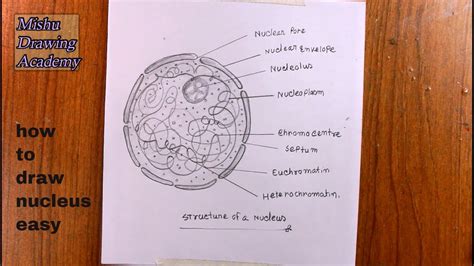 Mishu
Drawing
Academy
how
to
draw
nucleus
easy
Nuclear Pore
Nuclear Envelope
Nucleolus
Nucleoplasm
Chromocentre
Septum
Euchromatin
Heterochromatin.
Structure of a Nucleus